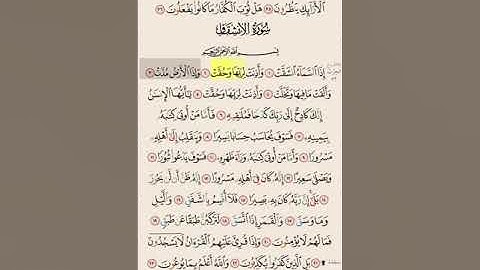 ٱلْأَرَآئِكِ يَنظُرُونَ ٣٥ هَلْ ثُوِّبَ ٱلْكُفَّارُ مَا كَانُوا۟ يَفْعَلُونَ ٣٦
سُورَةُ الانشِقَاقِ
بِسْمِ ٱللَّهِ ٱلرَّحْمَٰنِ ٱلرَّحِيمِ
إِذَا ٱلسَّمَآءُ ٱنشَقَّتْ ١ وَأَذِنَتْ لِرَبِّهَا وَحُقَّتْ ٢ وَإِذَا ٱلْأَرْضُ مُدَّتْ ٣
وَأَلْقَتْ مَا فِيهَا وَتَخَلَّتْ ٤ وَأَذِنَتْ لِرَبِّهَا وَحُقَّتْ ٥ يَٰٓأَيُّهَا ٱلْإِنسَٰنُ
إِنَّكَ كَادِحٌ إِلَىٰ رَبِّكَ كَدْحًا فَمُلَٰقِيهِ ٦ فَأَمَّا مَنْ أُوتِىَ كِتَٰبَهُۥ
بِيَمِينِهِۦ ٧ فَسَوْفَ يُحَاسَبُ حِسَابًا يَسِيرًا ٨ وَيَنقَلِبُ إِلَىٰٓ أَهْلِهِۦ
مَسْرُورًا ٩ وَأَمَّا مَنْ أُوتِىَ كِتَٰبَهُۥ وَرَآءَ ظَهْرِهِۦ ١٠ فَسَوْفَ يَدْعُوا۟ ثُبُورًا ١١
وَيَصْلَىٰ سَعِيرًا ١٢ إِنَّهُۥ كَانَ فِىٓ أَهْلِهِۦ مَسْرُورًا ١٣ إِنَّهُۥ ظَنَّ أَن لَّن يَحُورَ
١٤ بَلَىٰٓ إِنَّ رَبَّهُۥ كَانَ بِهِۦ بَصِيرًا ١٥ فَلَآ أُقْسِمُ بِٱلشَّفَقِ ١٦ وَٱلَّيْلِ
وَمَا وَسَقَ ١٧ وَٱلْقَمَرِ إِذَا ٱتَّسَقَ ١٨ لَتَرْكَبُنَّ طَبَقًا عَن طَبَقٍ ١٩
فَمَا لَهُمْ لَا يُؤْمِنُونَ ٢٠ وَإِذَا قُرِئَ عَلَيْهِمُ ٱلْقُرْءَانُ لَا يَسْجُدُونَ
۩ ٢١ بَلِ ٱلَّذِينَ كَفَرُوا۟ يُكَذِّبُونَ ٢٢ وَٱللَّهُ أَعْلَمُ بِمَا يُوعُونَ ٢٣